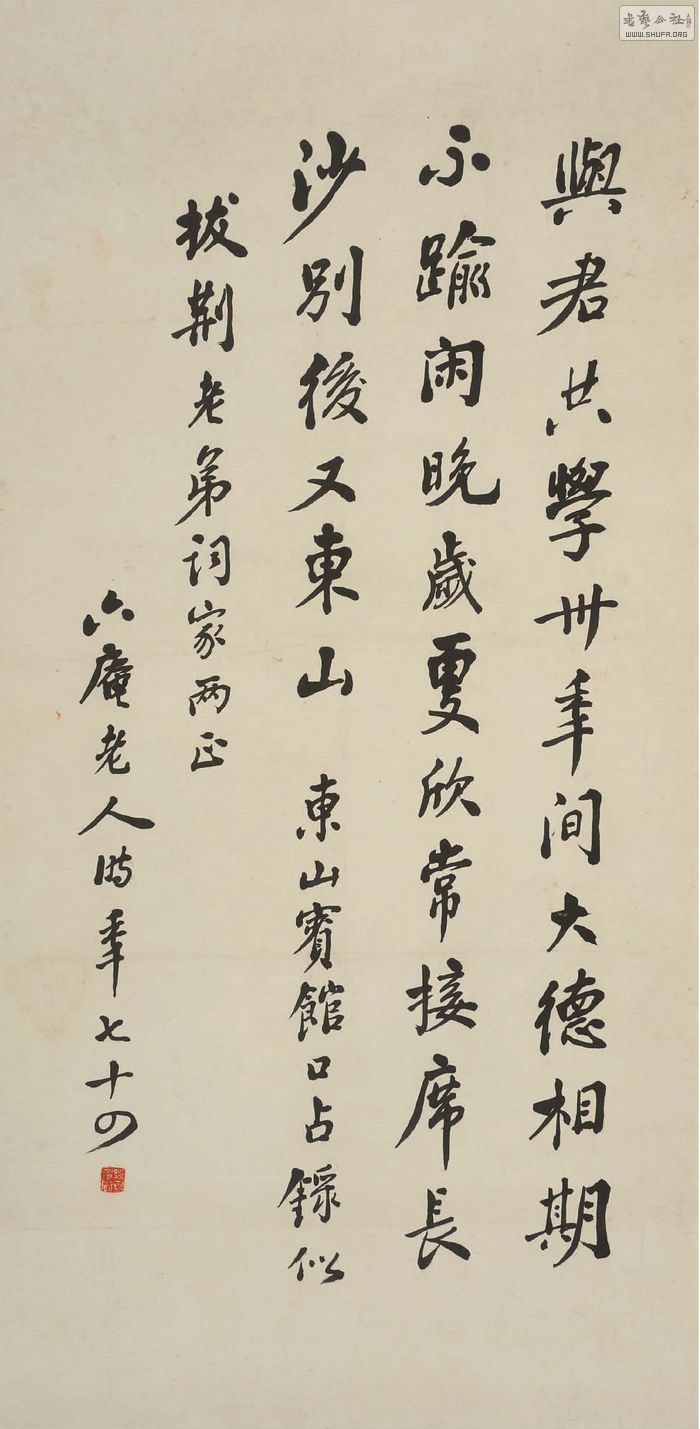 與君共學卅年间大德相期
不踰闲晚歲更欣常接席長
沙別後又東山 東山賓館口占錄似
拔荆老弟词家两正
六庵老人时年七十四
書藝公社
WWW.SHUFA.ORG